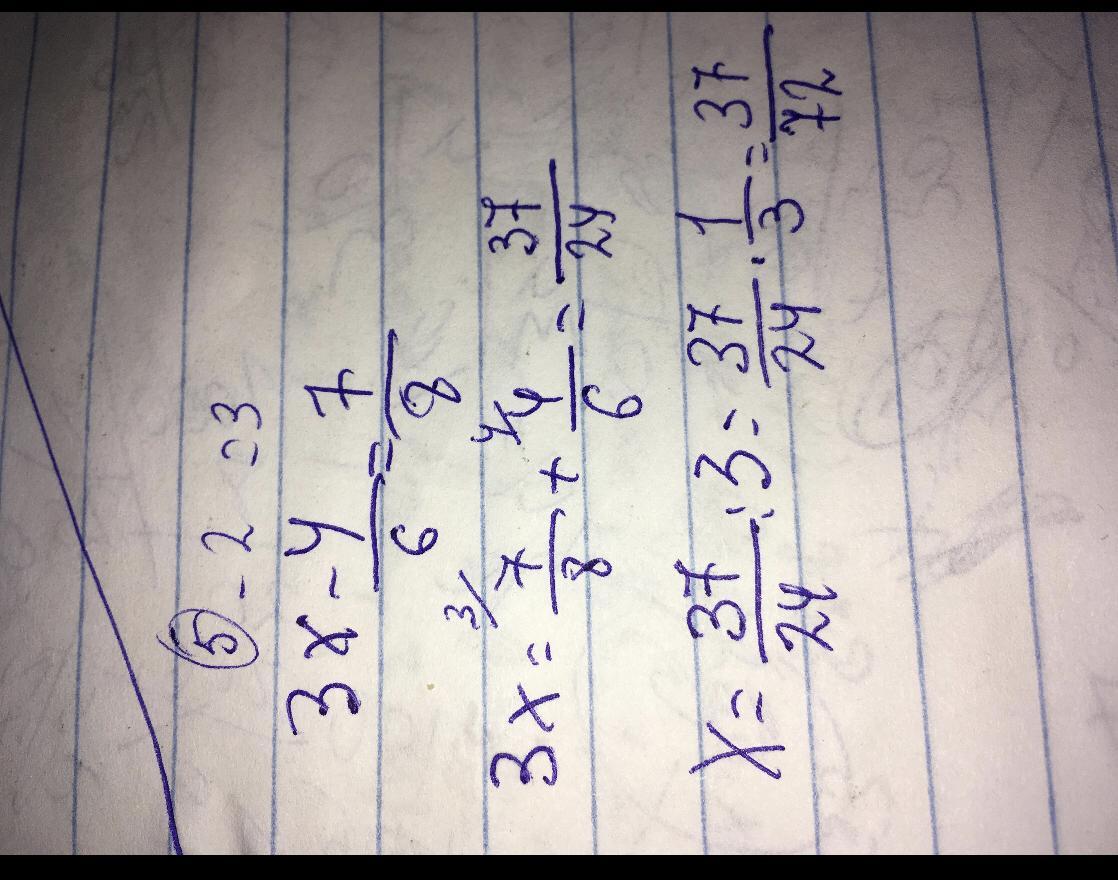 ⑤ - 2 = 3
3x - 4/6 = 7/8
3x = ³⁄ 7/8 + ⁴⁄ 4/6 = 37/24
x = 37/24 : 3 = 37/24 · 1/3 = 37/72